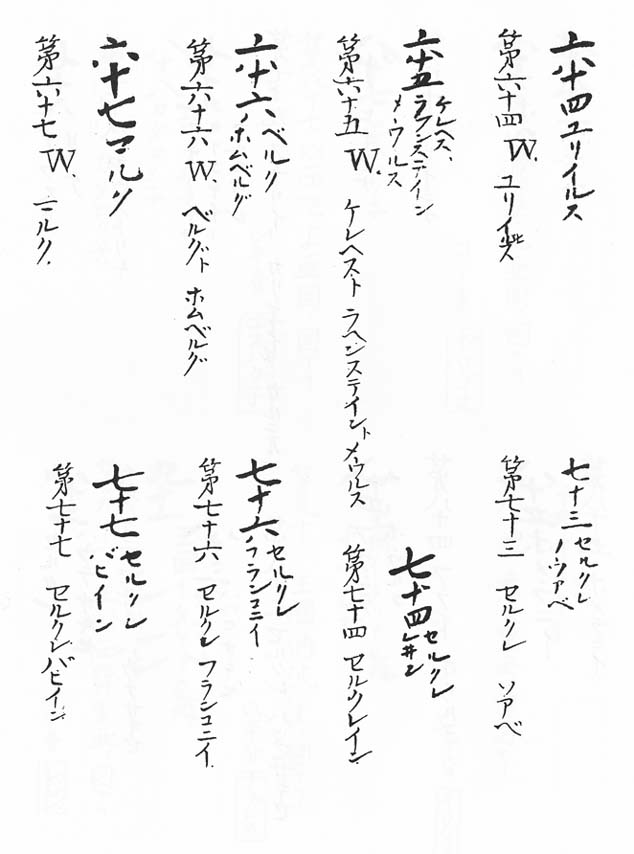 六十四ユリイルス
第六十四 W. ユリイ此ス
六十五 ケレヘス、
ラヘンステイン
メウルス
第六十五 W. ケレヘスト ラヘンステイント メウルス
六十六 ベルク
ホムベルグ
第六十六 W. ベルグト ホムベルグ
六十七 ニルク
第六十七 W. ニルク.
七十三 セルクレ
ソウアベ
第七十三 セルクレ ソアベ
七十四 セルクレ
レ井ン
第七十四 セルクレレイン
七十六 セルクレ
フランコニイ
第七十六 セルクレ フランコニイ.
七十七 セルクレ
バビイン
第七十七 セルクレ バビイン